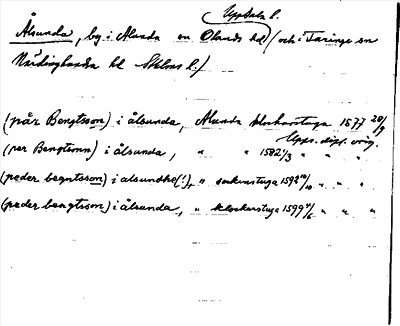 Uppsala l.
Ålsunda, by i Alunda sn Olands hd (och i Taringe sn
hd Sthlms l.)
(pär Bengtsson) i ålsunda, Alunda klockarstuga 1577 20/9
Upps. dipl. orig.
(per Bengtsonn) i ålsunda, " " 1582 1/3 " " "
(peder begntsson) i alsundhe(!), " sockenstuga 1592 10/10 " " "
(peder bengtsson) i ålsunda, " klockarstuga 1599 4/6 " " "